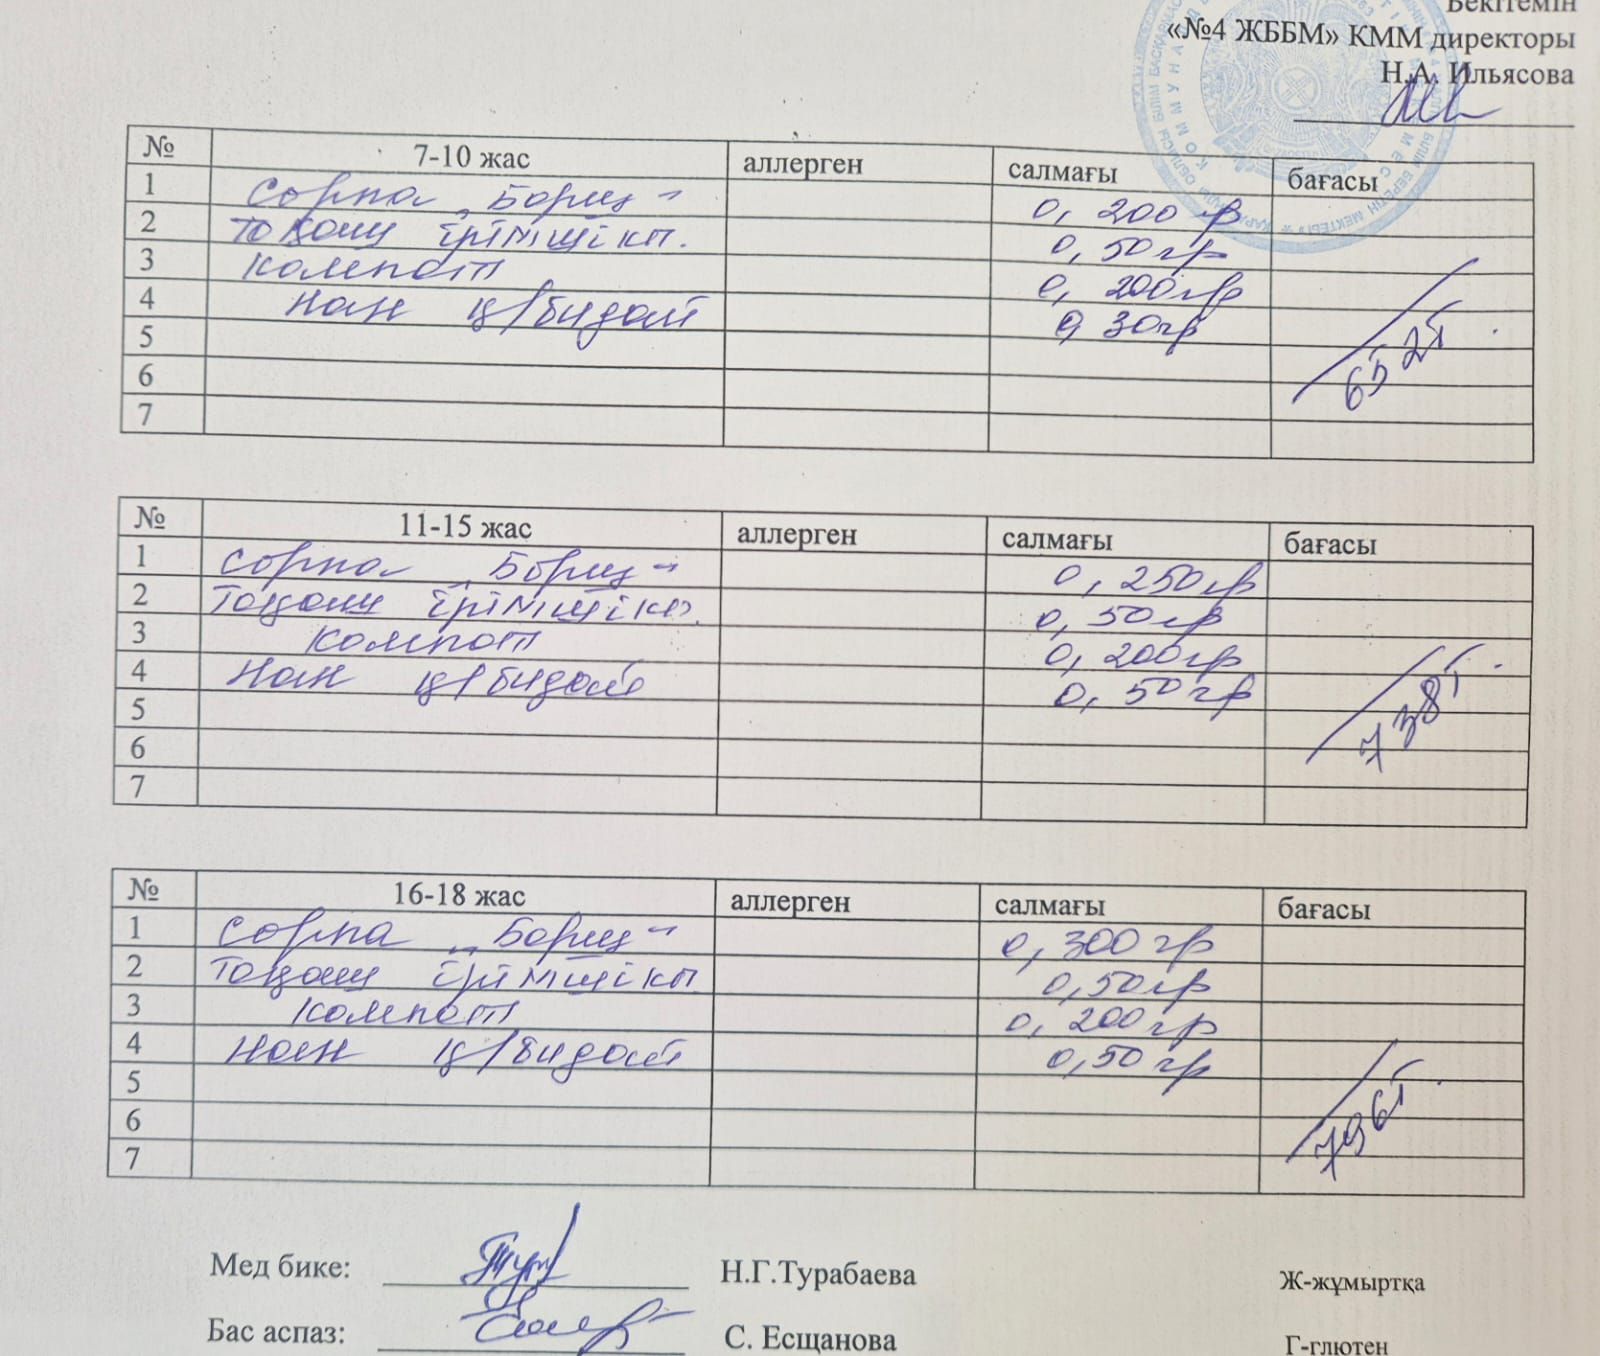 Бекітемін
«№4 ЖББМ» КММ директоры
Н.А. Ильясова
№ 7-10 жас аллерген салмағы бағасы
1 Сорпа „Борщ" 0, 200 гр
2 Тоқаш ірімшікп. 0, 50 гр
3 Компот 0, 200 гр
4 Нан қ/бидай 0, 30 гр
5 652т
6
7
№ 11-15 жас аллерген салмағы бағасы
1 Сорпа „Борщ" 0, 250 гр
2 Тоқаш ірімшікп. 0, 50 гр
3 Компот 0, 200 гр
4 Нан қ/бидай 0, 50 гр
5 738т.
6
7
№ 16-18 жас аллерген салмағы бағасы
1 Сорпа „Борщ" 0, 300 гр
2 Тоқаш ірімшікп 0,50 гр
3 Компот 0, 200 гр
4 Нан қ/бидай 0,50 гр
5 796т.
6
7
Мед бике: Н.Г.Турабаева Ж-жұмыртқа
Бас аспаз: С. Есщанова Г-глютен